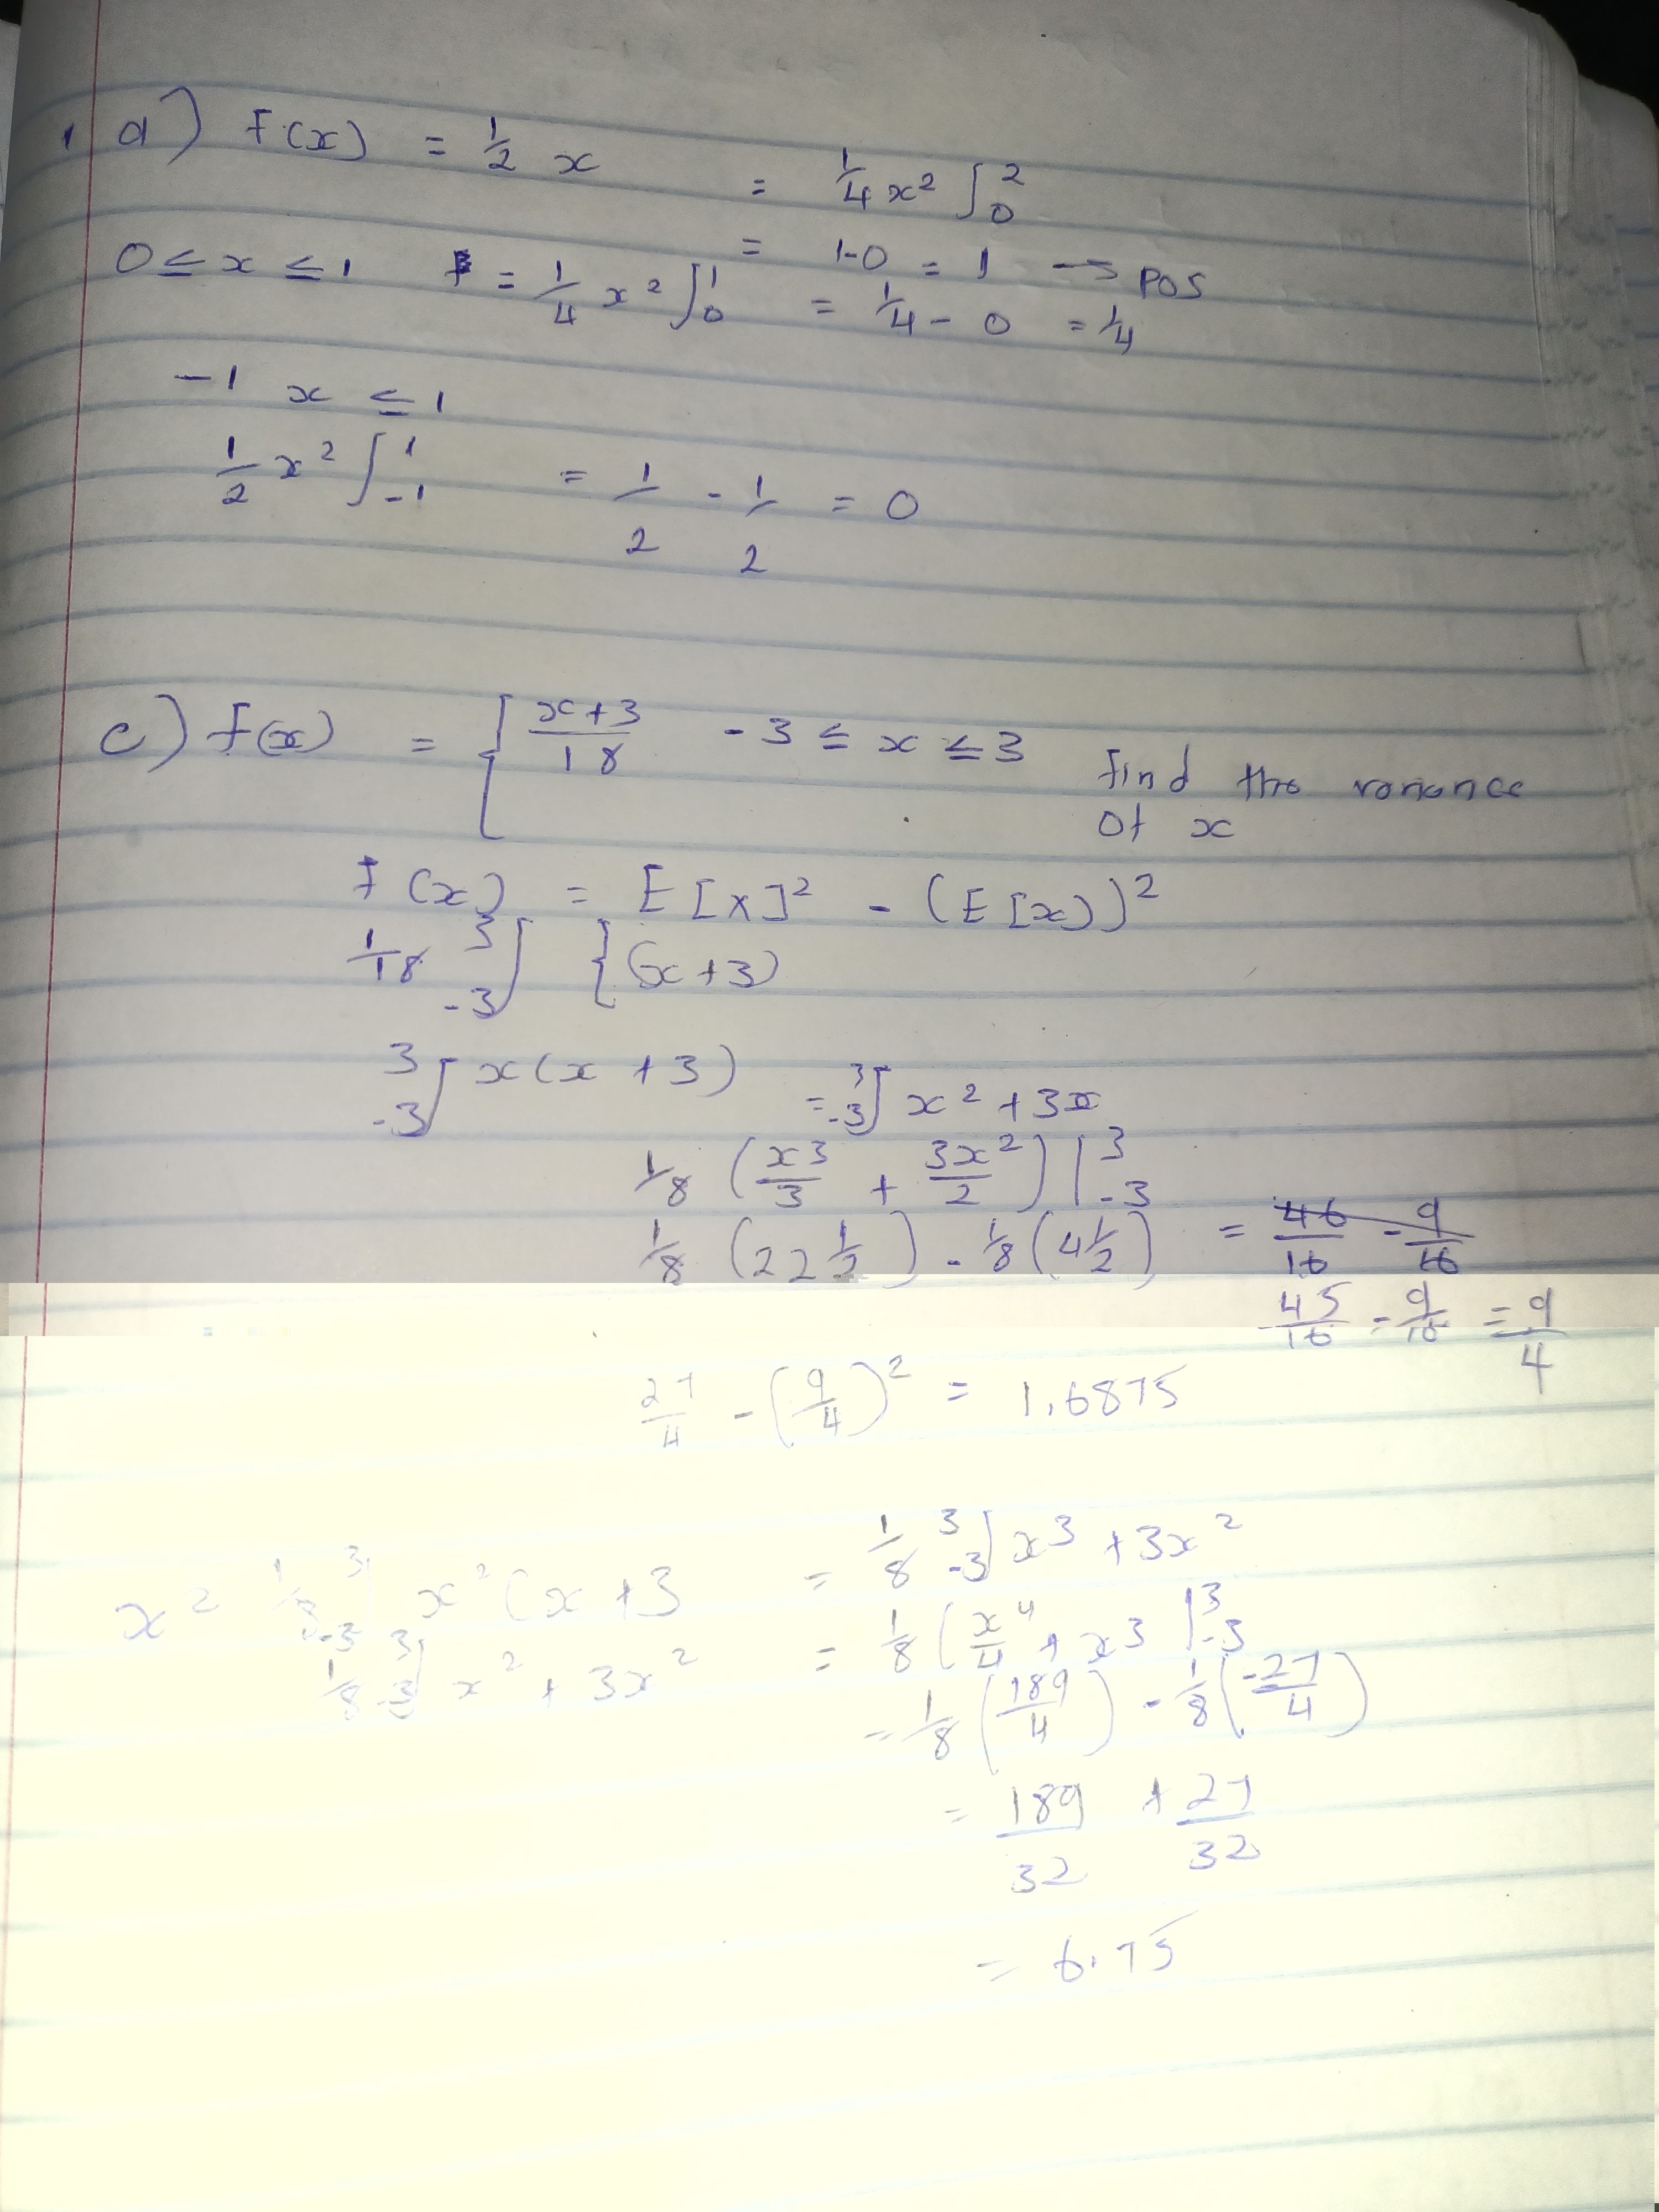 1 a) f(x) = 1/2 x = 1/4 x² ∫ 2 0
= 1-0 = 1 → pos
0 ≤ x ≤ 1 = 1/4 x² ∫ 1 0 = 1/4 - 0 = 1/4
-1 x ≤ 1
1/2 x² ∫ 1 -1 = 1/2 - 1/2 = 0
c) f(x) = { x+3/18 -3 ≤ x ≤ 3 find the variance
of x
f(x) = E[X]² - (E[x))²
1/18 3 -3 ∫ { (x+3)
3 -3 ∫ x(x+3) = 3 -3 ∫ x² + 3x
1/8 (x3/3 + 3x²/2) | 3 -3
1/8 (22 1/2) - 1/8 (4 1/2) = 46/16 - 9/16
45/16 - 9/16 = 9/4
27/4 - (9/4)² = 1.6875
x² 1/8 3 -3 ∫ x²(x+3 = 1/8 3 -3 ∫ x3 + 3x²
1/8 3 -3 ∫ x² + 3x² = 1/8 (x4/4 + x3 | 3 -3
= 1/8 (189/4) - 1/8 (-27/4)
= 189/32 + 27/32
= 6.75